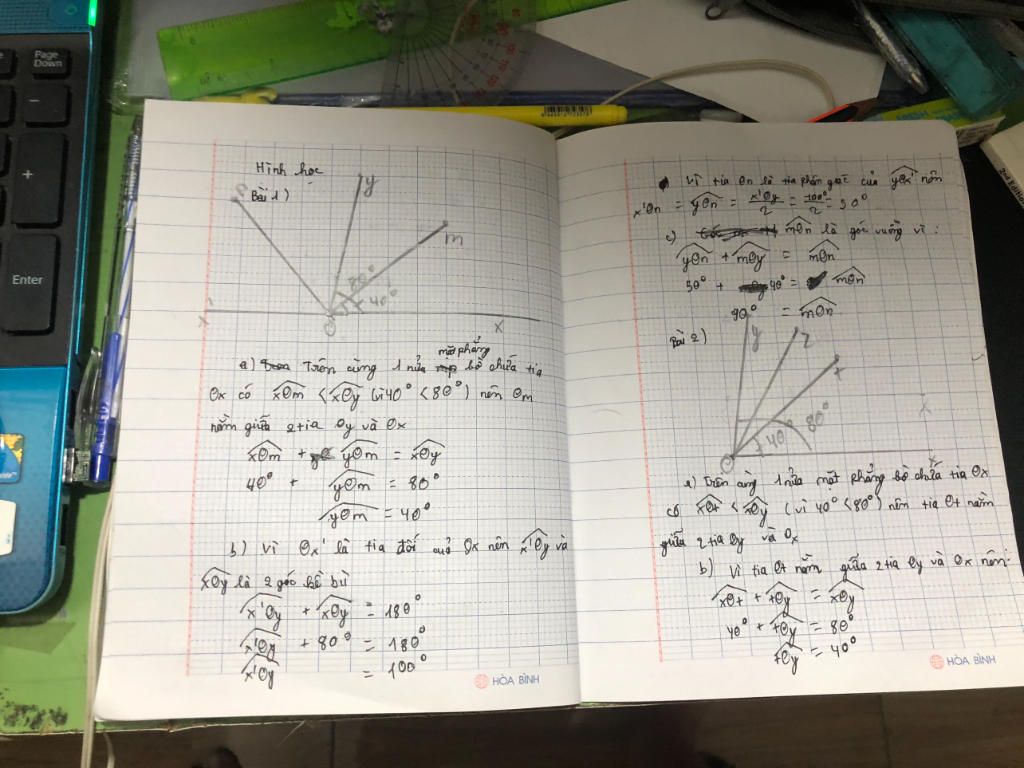 Page
Down
Enter
Hình học
Bài 1)
n
y
m
80°
40°
x'
O
x
a) Trên cùng 1 nửa mặt phẳng bờ chứa tia
Ox có xOm < xOy (vì 40° < 80°) nên Om
nằm giữa 2 tia Oy và Ox
xOm + yOm = xOy
40° + yOm = 80°
yOm = 40°
b) Vì Ox' là tia đối của Ox nên x'Oy và
xOy là 2 góc kề bù
x'Oy + xOy = 180°
x'Oy + 80° = 180°
x'Oy = 100°
HÒA BÌNH
Vì tia On là tia phân giác của yOx' nên
x'On = yOn = x'Oy/2 = 100°/2 = 50°
c) mOn là góc vuông vì:
yOn + mOy = mOn
50° + 40° = mOn
90° = mOn
Bài 2)
y
z
t
40°
80°
O
x
a) Trên cùng 1 nửa mặt phẳng bờ chứa tia Ox
có xOt < xOy (vì 40° < 80°) nên tia Ot nằm
giữa 2 tia Oy và Ox
b) Vì tia Ot nằm giữa 2 tia Oy và Ox nên:
xOt + tOy = xOy
40° + tOy = 80°
tOy = 40°
HÒA BÌNH